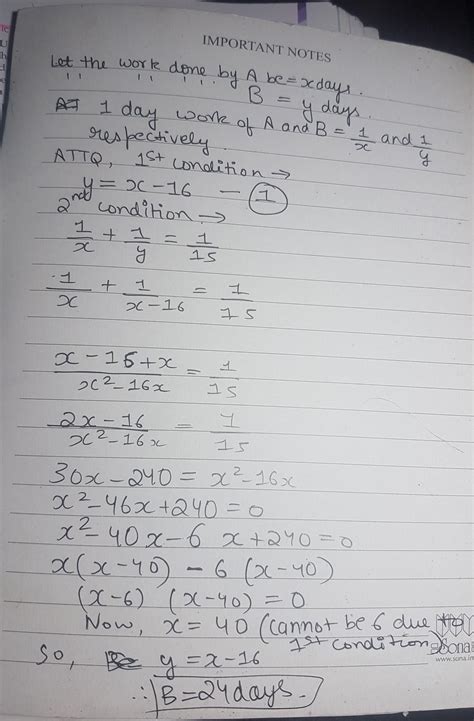 IMPORTANT NOTES
Let the work done by A be = x days.
" " " " " B = y days.
1 day work of A and B = 1/x and 1/y
respectively.
ATTQ, 1st condition →
y = x - 16 — ①
2nd condition →
1/x + 1/y = 1/15
1/x + 1/x-16 = 1/15
x - 16 + x / x² - 16x = 1/15
2x - 16 / x² - 16x = 1/15
30x - 240 = x² - 16x
x² - 46x + 240 = 0
x² - 40x - 6x + 240 = 0
x(x - 40) - 6(x - 40)
(x - 6) (x - 40) = 0
Now, x = 40 (cannot be 6 due to
1st condition)
Sona
www.sona.
So, y = x - 16
∴ B = 24 days.